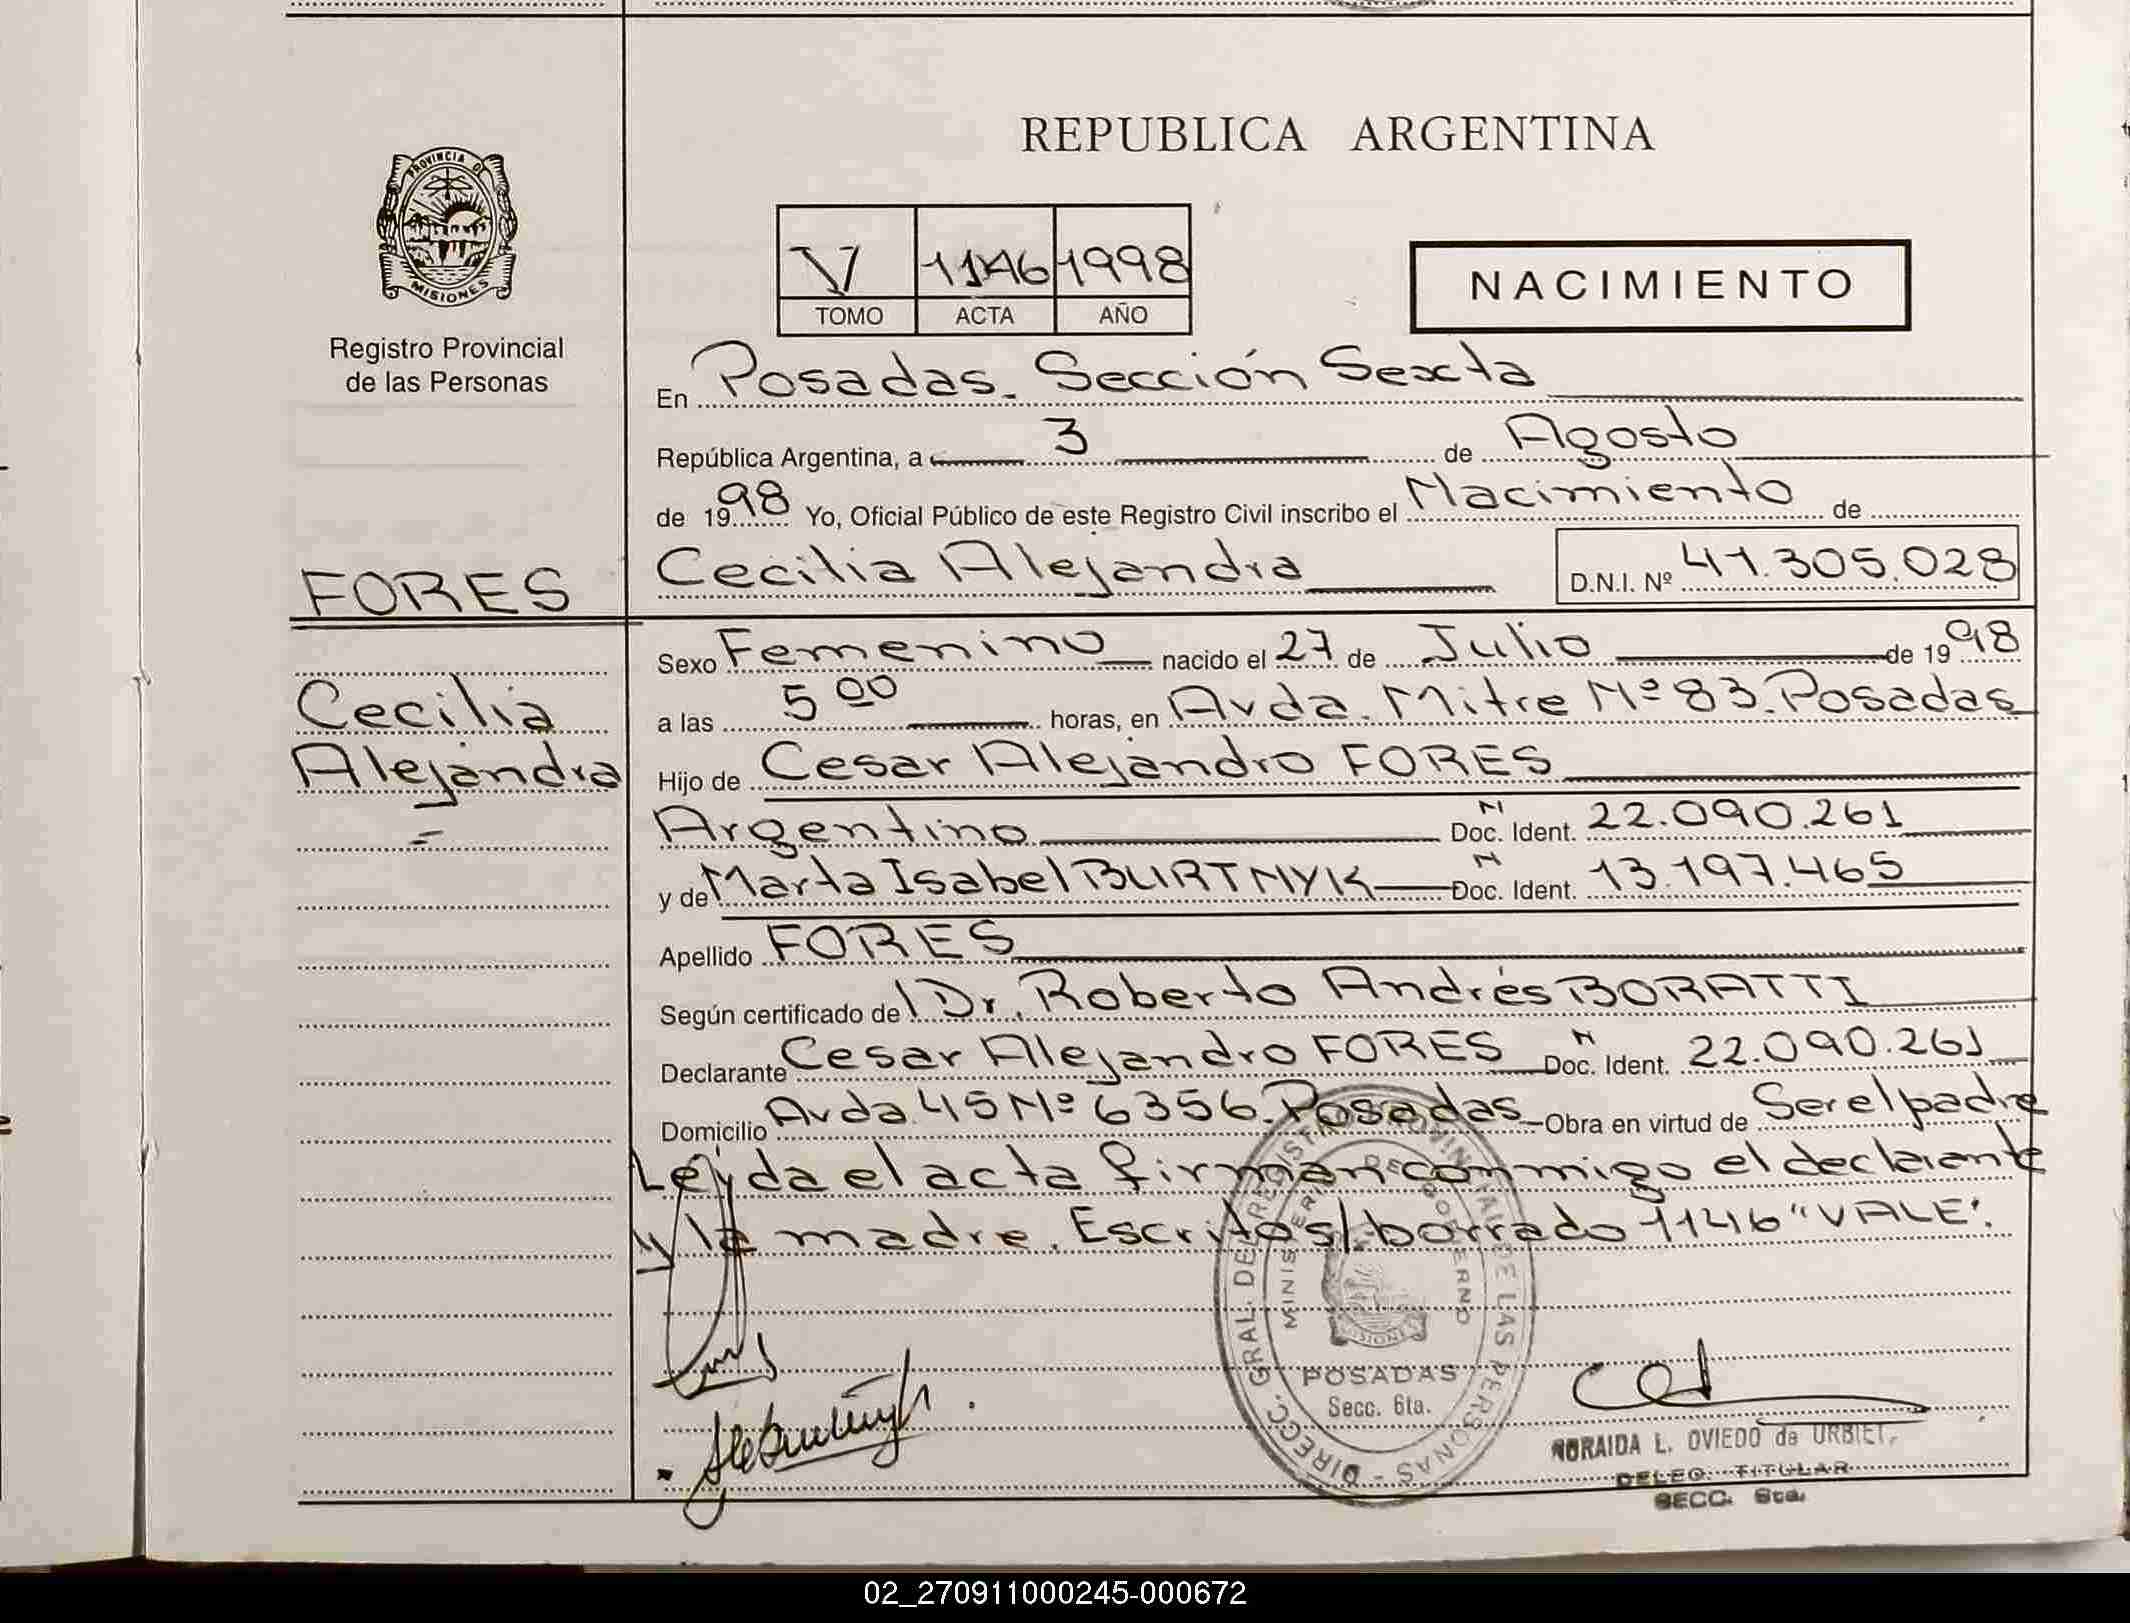 REPUBLICA ARGENTINA
PROVINCIA DE
MISIONES
Registro Provincial
de las Personas
V 1146 1998
TOMO ACTA AÑO
NACIMIENTO
En Posadas. Sección Sexta
República Argentina, a 3 de Agosto
de 1998 Yo, Oficial Público de este Registro Civil inscribo el Nacimiento de
Cecilia Alejandra D.N.I. Nº 41.305.028
FORES
Cecilia
Alejandra
Sexo Femenino nacido el 27 de Julio de 1998
a las 5 00 horas, en Avda. Mitre Nº 83. Posadas
Hijo de Cesar Alejandro FORES
Argentino N Doc. Ident. 22.090.261
y de Marta Isabel BURTNYK N Doc. Ident. 13.197.465
Apellido FORES
Según certificado del Dr. Roberto Andrés BORATTI
Declarante Cesar Alejandro FORES N Doc. Ident. 22.090.261
Domicilio Avda 45 Nº 6356. Posadas Obra en virtud de Ser el padre
Leída el acta firman conmigo el declarante
y la madre. Escritos/borrado 1146 "VALE".
DIRECC. GRAL. DEL REGISTRO PROVINCIAL DE LAS PERSONAS
MINISTERIO DE GOBIERNO
MISIONES
POSADAS
Secc. 6ta.
NORAIDA L. OVIEDO de URBIET
DELEG. TITULAR
SECC. 6ta.
02_270911000245-000672